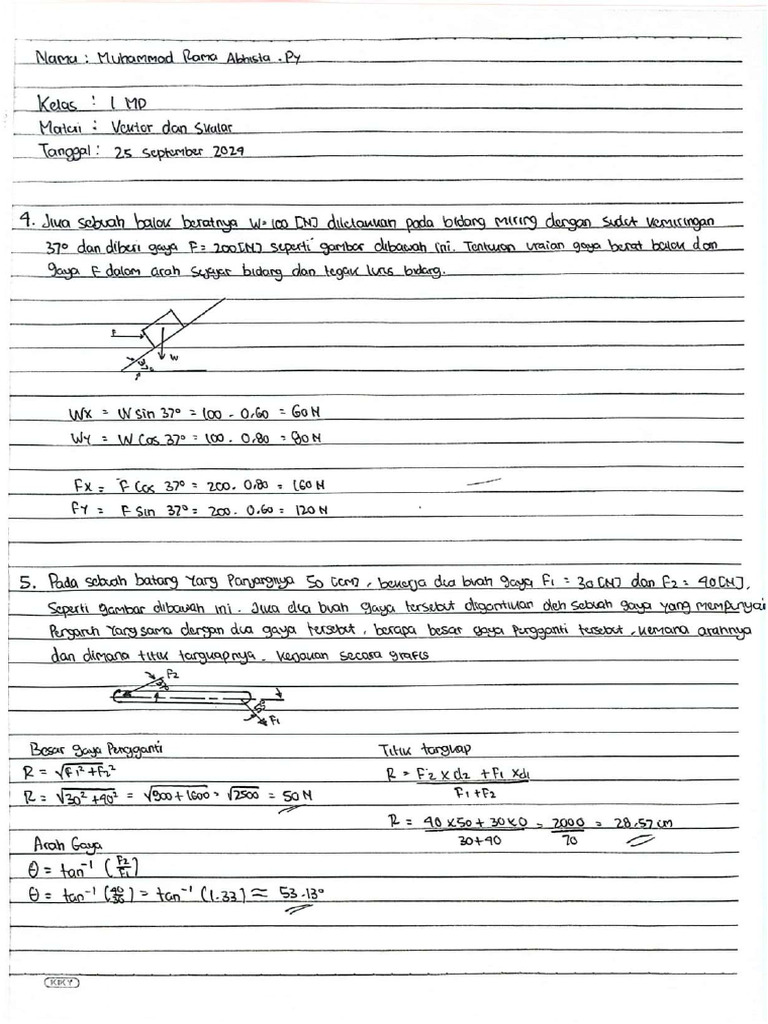 Nama : Muhammad Rama Abhista . Py
Kelas : 1 MD
Materi : Vektor dan Skalar
Tanggal : 25 September 2024
4. Jika sebuah balok beratnya W=100 [N] diletakkan pada bidang miring dengan sudut kemiringan
37° dan diberi gaya F = 200[N] seperti gambar dibawah ini. Tentukan uraian gaya berat balok dan
gaya F dalam arah sejajar bidang dan tegak lurus bidang.
F
W
37°
Wx = W sin 37° = 100 . 0,60 = 60 N
Wy = W Cos 37° = 100 . 0,80 = 80 N
Fx = F Cos 37° = 200 . 0,80 = 160 N
Fy = F Sin 37° = 200 . 0,60 = 120 N
5. Pada sebuah batang yang Panjangnya 50 [cm], bekerja dua buah gaya F1 = 30[N] dan F2 = 40[N],
Seperti gambar dibawah ini. Jika dua buah gaya tersebut digantikan oleh sebuah gaya yang mempunyai
Pengaruh yang sama dengan dua gaya tersebut, berapa besar gaya Pengganti tersebut, kemana arahnya
dan dimana titik tangkapnya. Kerjakan secara grafis
F2
F1
Besar gaya Pengganti
R = √F1² + F2²
R = √30² + 40² = √900 + 1600 = √2500 = 50 N
Arah Gaya
θ = tan⁻¹ (F2/F1)
θ = tan⁻¹ (40/30) = tan⁻¹ (1.33) ≈ 53.13°
Titik tangkap
R = F2 x d2 + F1 x d1 / F1 + F2
R = 40 x 50 + 30 x 0 / 30 + 40 = 2000 / 70 = 28,57 cm
KIKY